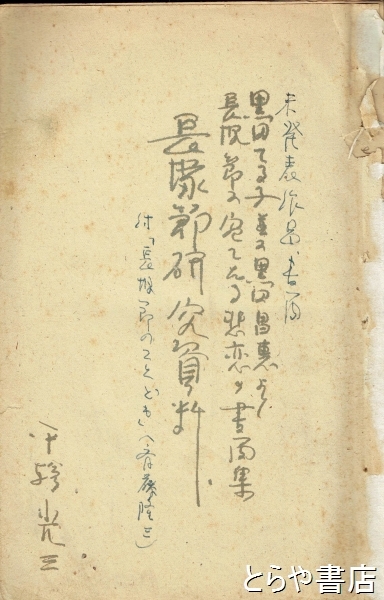 未発表作品書簡
黒田てる子並に黒田昌恵より
長塚節に宛てたる悲恋の書簡集
長塚節研究資料
付「長塚節のことども」(斉藤隆三)
光三
とらや書店